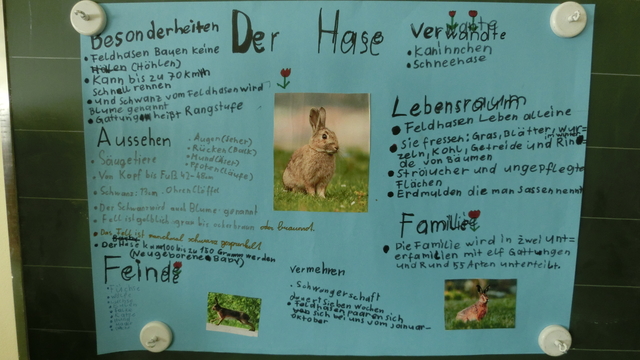 Der Hase
Besonderheiten
• Feldhasen Bauen keine
(Höhlen)
• Kann bis zu 70 km/h
schnell rennen
• und Schwanz vom Feldhasen wird
Blume genannt
• Gattung heißt Rangstufe
Aussehen
• Augen (Seher)
• Rücken
• Mund
• Pfoten (Läufe)
• Säugetiere
• Von Kopf bis Fuß
• Schwanz: 7cm. Ohren Löffel
• Der Schwanz wird auch Blume genannt
• Fell ist gelblich-grau bis
oder braunrot
• Das Fell ist manchmal schwarz gesprenkelt
• Der Hase kann 100 bis zu 150 Gramm werden
(Neugeborene Baby)
Feinde
• Füchse
Vermehren
• Schwangerschaft
dauert sieben Wochen
• Feldhasen paaren sich
sich bei uns vom Januar-
Oktober
Verwandte
• Kaninnchen
• Schneehase
Lebensraum
• Feldhasen Leben alleine
• Sie fressen: Gras, Blätter, wur=
zeln, Kohl, Getreide und Rin
de von Bäumen
• Sträucher und ungepflegte
Flächen
• Erdmulden die man Sassen nennt
Familie
• Die Familie wird in zwei Unt=
erfamilien mit elf Gattungen
und Rund 55 Arten unterteilt.